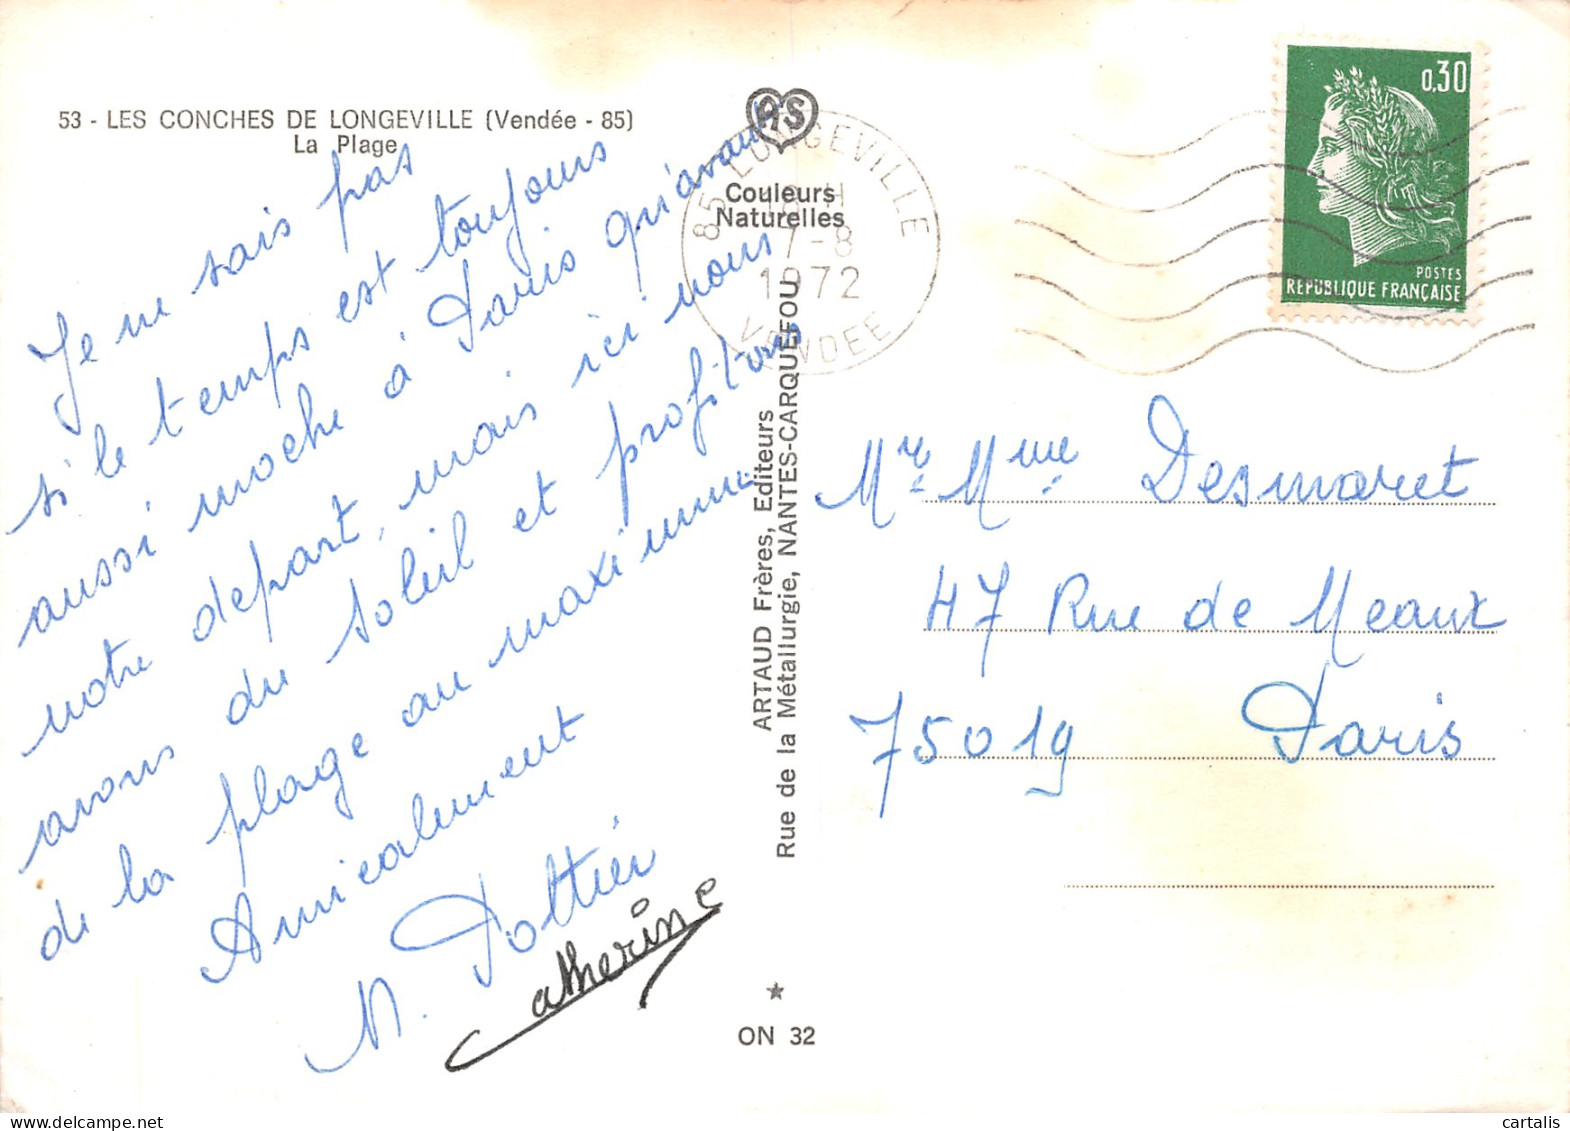 53 - LES CONCHES DE LONGEVILLE (Vendée - 85)
La Plage
Je ne sais pas
si le temps est toujours
aussi moche à Paris qu'avant
notre départ, mais ici nous
avons du soleil et profitons
de la plage au maximum
Amicalement
M. Pottier
Catherine
AS
Couleurs
Naturelles
ARTAUD Frères, Editeurs
Rue de la Métallurgie, NANTES-CARQUEFOU
ON 32
85 LONGEVILLE
18 H
7-8
1972
VENDEE
0,30
POSTES
REPUBLIQUE FRANÇAISE
Mr Mme Desmaret
47 Rue de Meaux
75019 Paris
cartalis